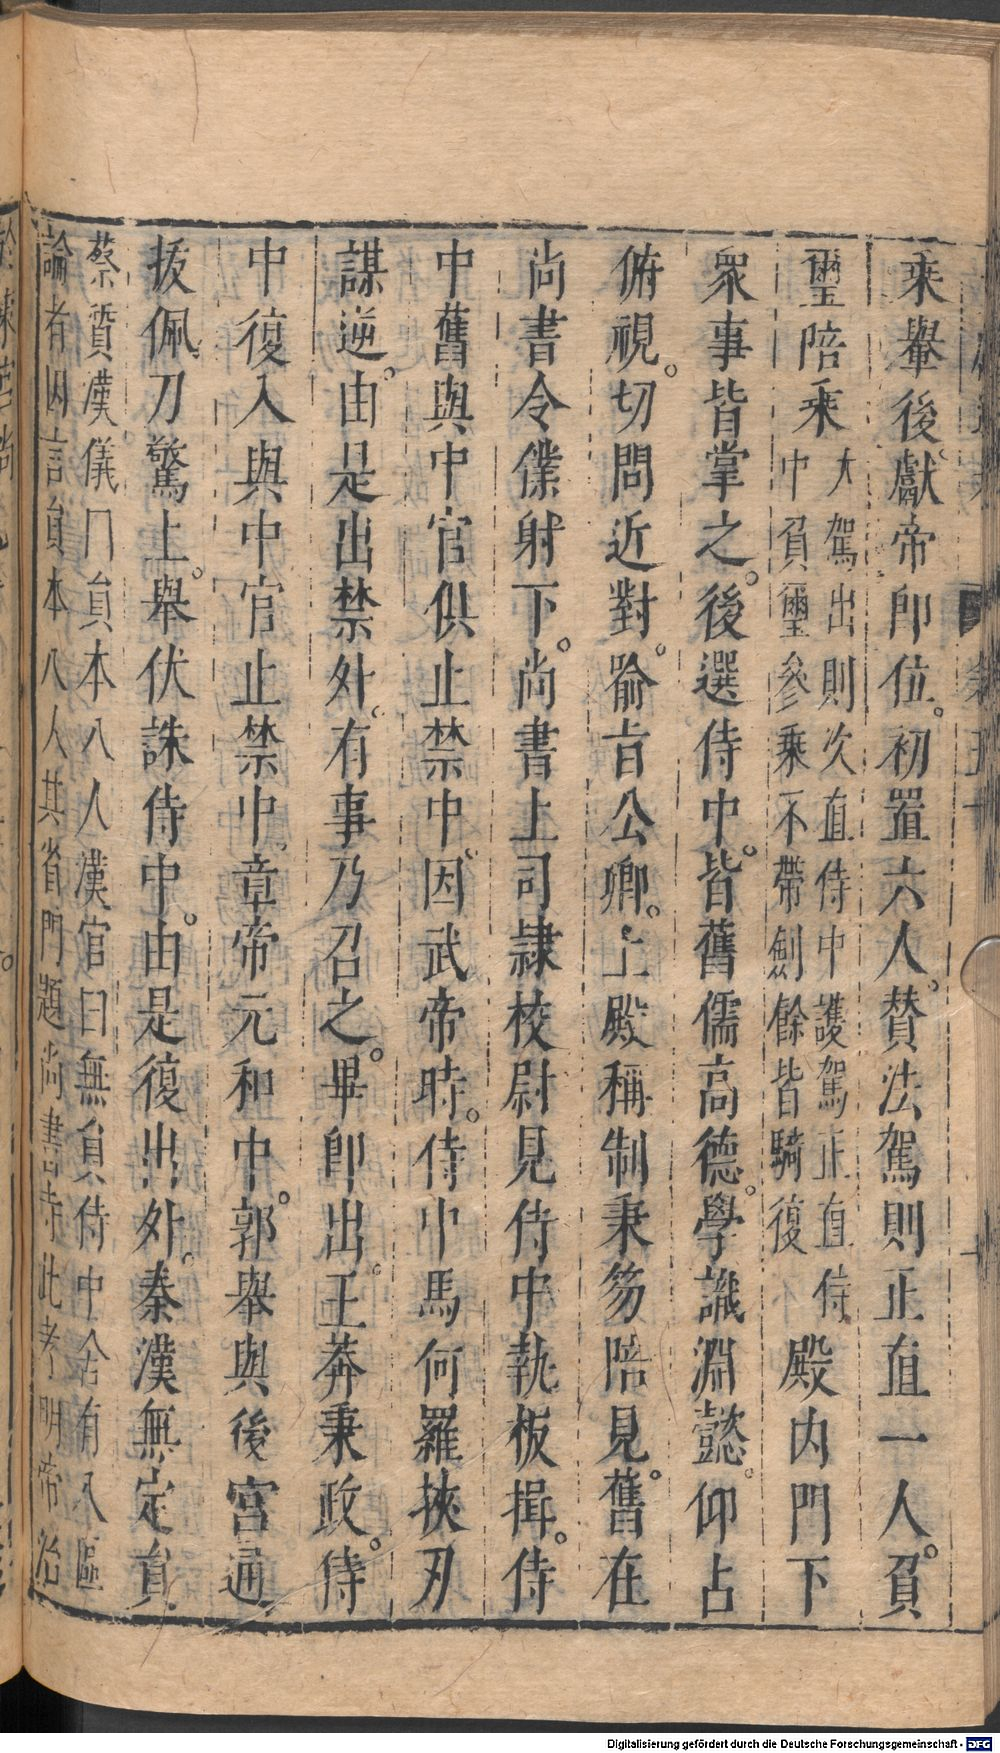 乘轝後。獻帝卽位。初置六人。贊法駕則正直一人。負
璽陪乘大駕出則次直侍中護駕正直侍
中負璽參乘不帶劍餘皆騎從殿內門下
衆事皆掌之。後選侍中。皆舊儒高德。學識淵懿。仰占
俯視。切問近對。喻旨公卿。上殿稱制秉笏陪見。舊在
尚書令僕射下。尚書上司隸校尉見侍中執板揖。侍
中舊與中官俱止禁中。因武帝時。侍中馬何羅挾刃
謀逆。由是出禁外。有事乃召之。畢卽出。王莽秉政。侍
中復入與中官止禁中。章帝元和中。郭舉與後宮通
拔佩刀驚上。舉伏誅侍中。由是復出外。秦漢無定員
蔡質漢儀曰員本八人漢官曰無員侍中舍有八區
論者因言員本八人其省門題尚書寺此考明帝治
Digitalisierung gefördert durch die Deutsche Forschungsgemeinschaft - DFG